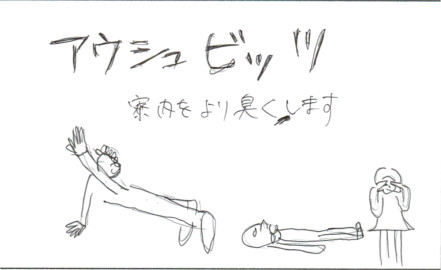 アウシュビッツ
案内をより臭くします